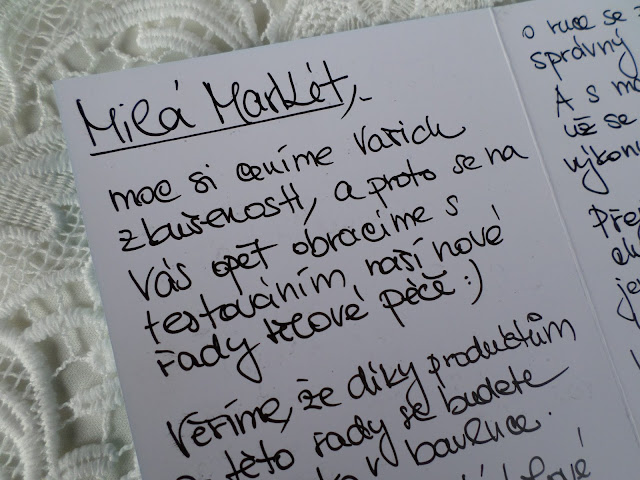 Milá Markét,
moc si ceníme Vašich
zkušeností, a proto se na
Vás opět obracíme s
testováním naší nové
řady tělové péče :)
Věříme, že díky produktům
této řady se budete
v bavlnce.
o ruce se
správný
A s
už se